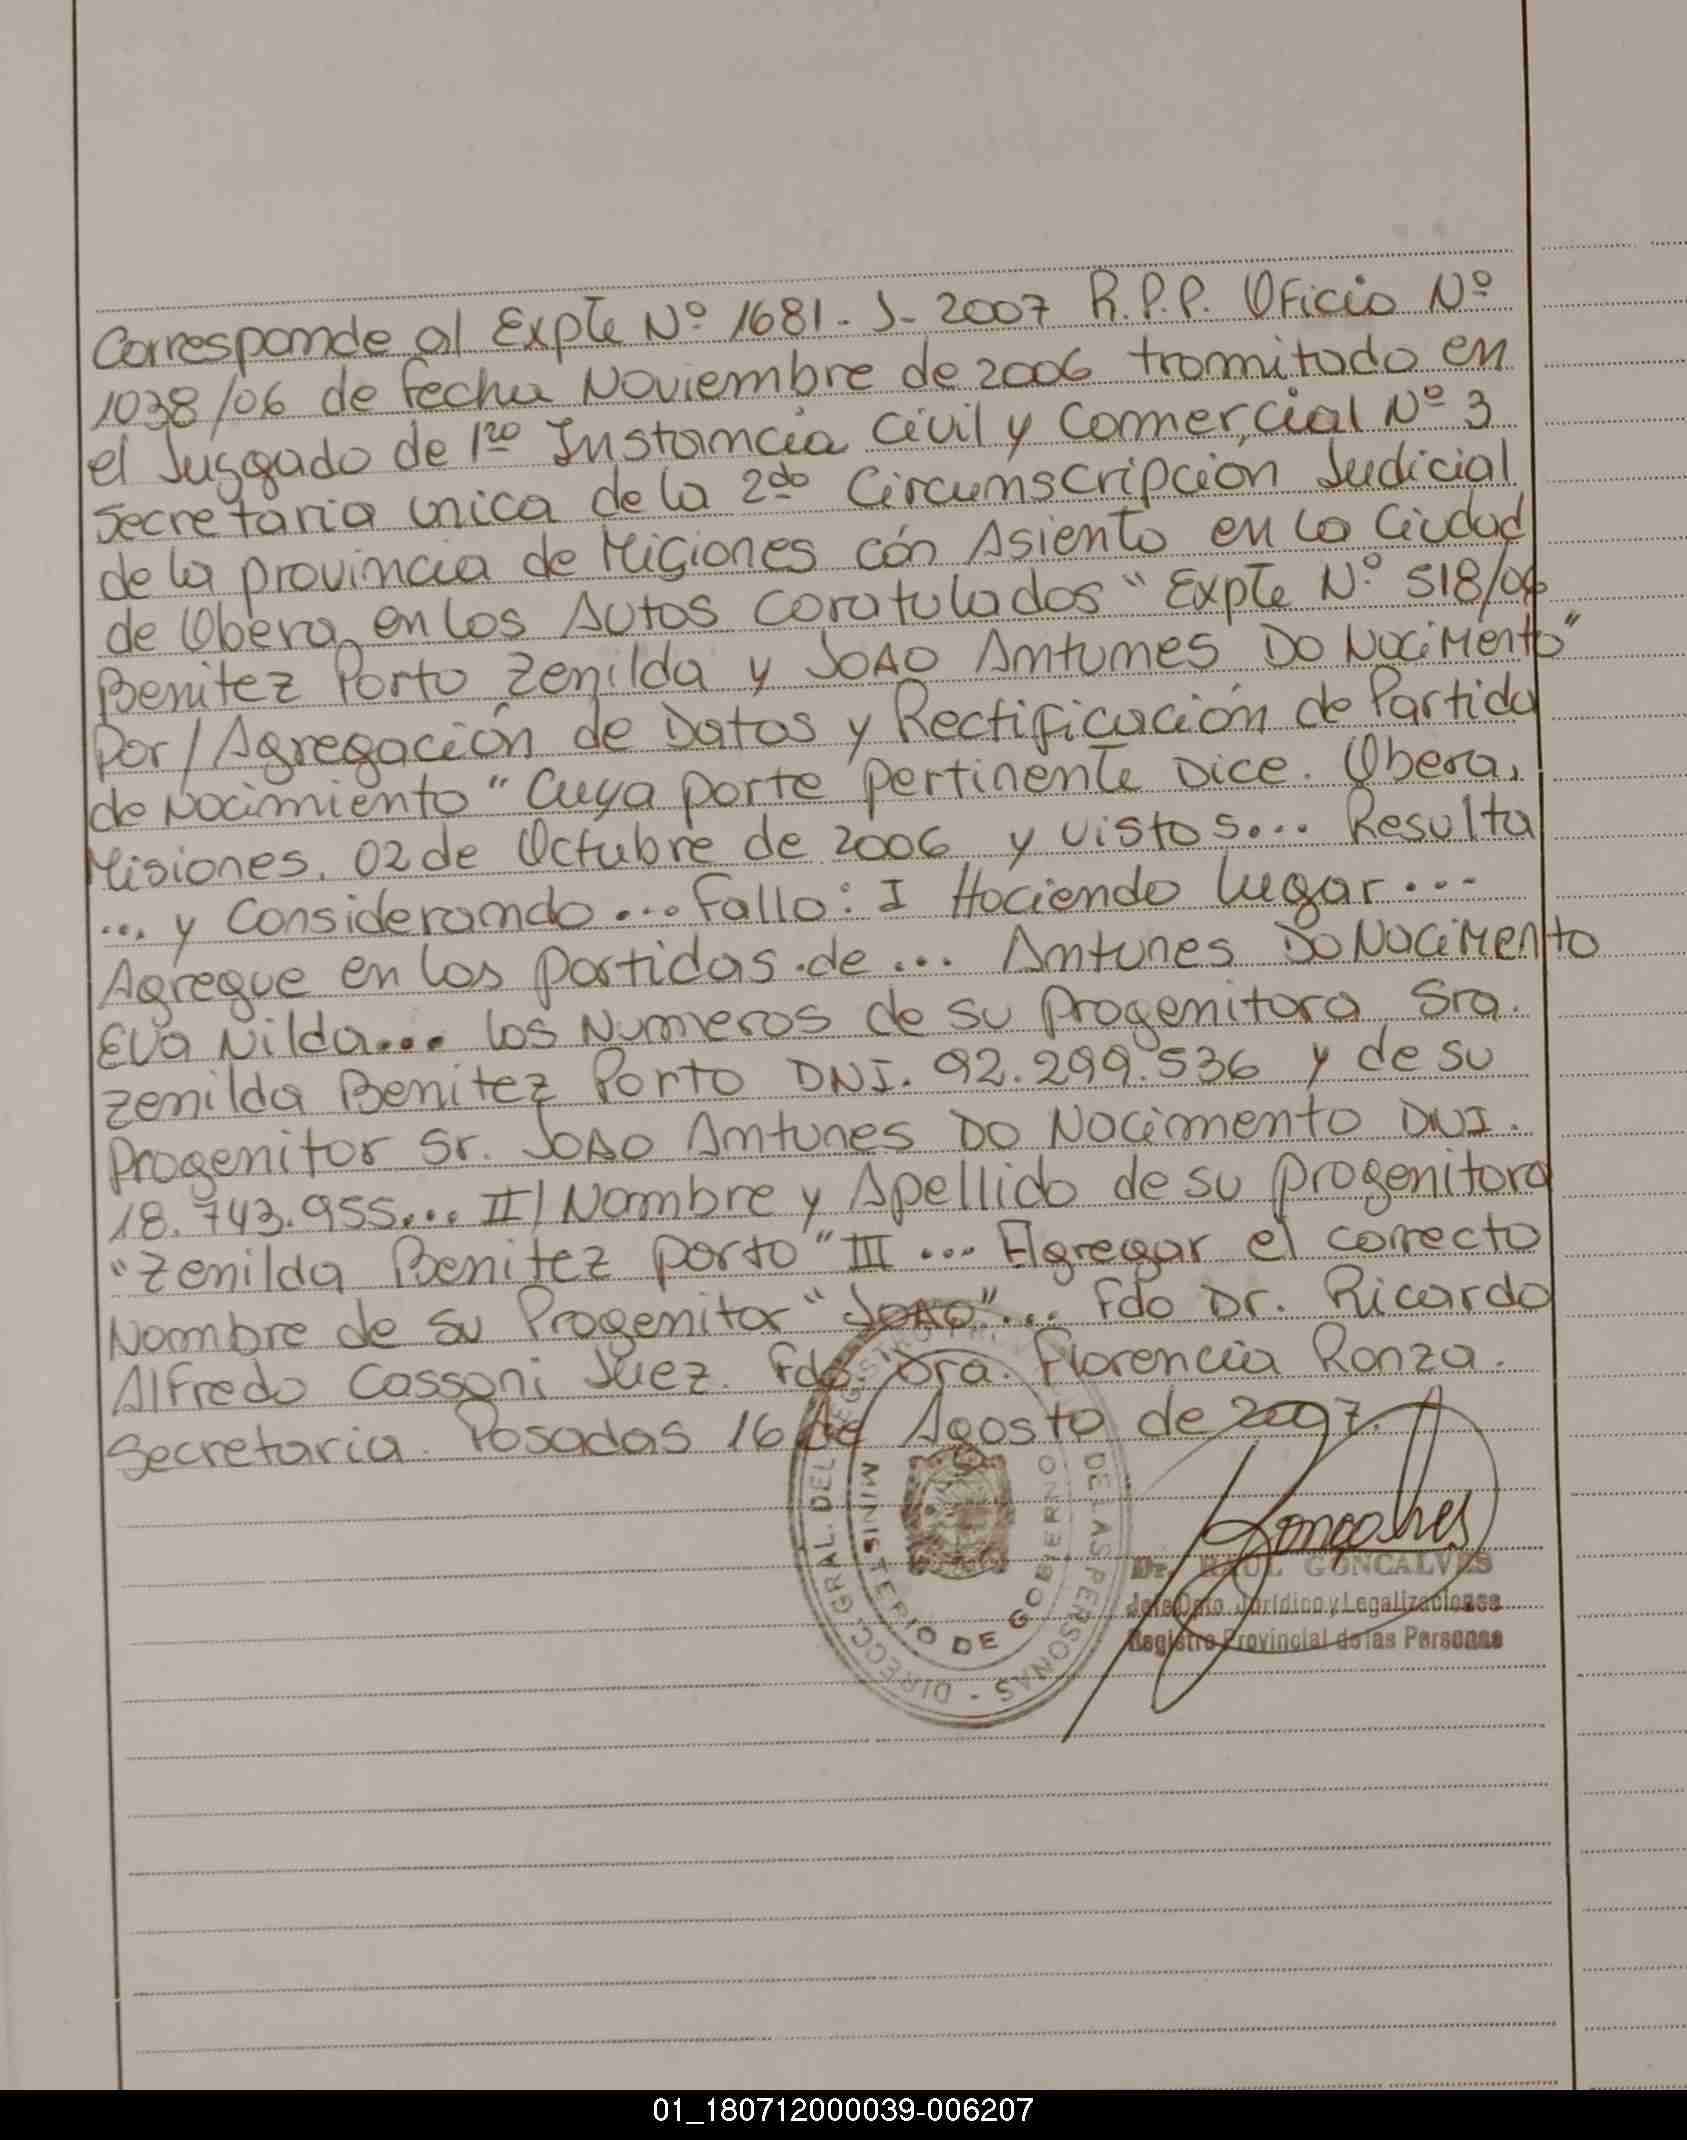 Corresponde al Expte Nº 1681-J-2007 R.P.P. Oficio Nº
1038/06 de fecha Noviembre de 2006 tramitado en
el Juzgado de 1ra Instancia Civil y Comercial Nº 3
Secretaria unica de la 2da Circumscripcion Judicial
de la provincia de Misiones cón Asiento en la Ciudad
de Obera en los Autos Coratulados "Expte Nº 518/06
Benitez Porto Zenilda y JOAO Antunes DO Nacimento"
Por/Agregación de Datos y Rectificación de Partida
de Nacimiento" Cuya parte pertinente Dice. Obera,
Misiones, 02 de Octubre de 2006 y vistos... Resulta
... y Considerando... Fallo: I Haciendo lugar...
Agregue en las partidas de... Antunes DO Nacimento
Eva Nilda... los Numeros de su progenitora Sra.
Zenilda Benitez Porto DNI. 92.299.536 y de su
Progenitor Sr. JOAO Antunes DO Nacimento DNI.
18.743.955... II/ Nombre y Apellido de su progenitora
"Zenilda Benitez porto" III ... Agregar el correcto
Nombre de su Progenitor "JOAO"... Fdo Dr. Ricardo
Alfredo Cassoni Juez. Fdo. Dra. Florencia Ronza.
Secretaria. Posadas 16 de Agosto de 2007.
Goncalves
Dr. RAUL GONCALVES
Jefe Dpto. Jurídico y Legalizaciones
Registro Provincial de las Personas
DIRECC. GRAL. DEL REGISTRO DE LAS PERSONAS
MINISTERIO DE GOBIERNO
01_180712000039-006207